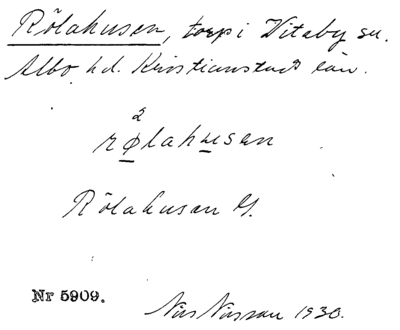 Rölahusen, torp i Vitaby sn.
Albo hd. Kristianstads län.
2
rølahusen
Rölahusen
Nr 5909.
Nils Nilsson 1930.